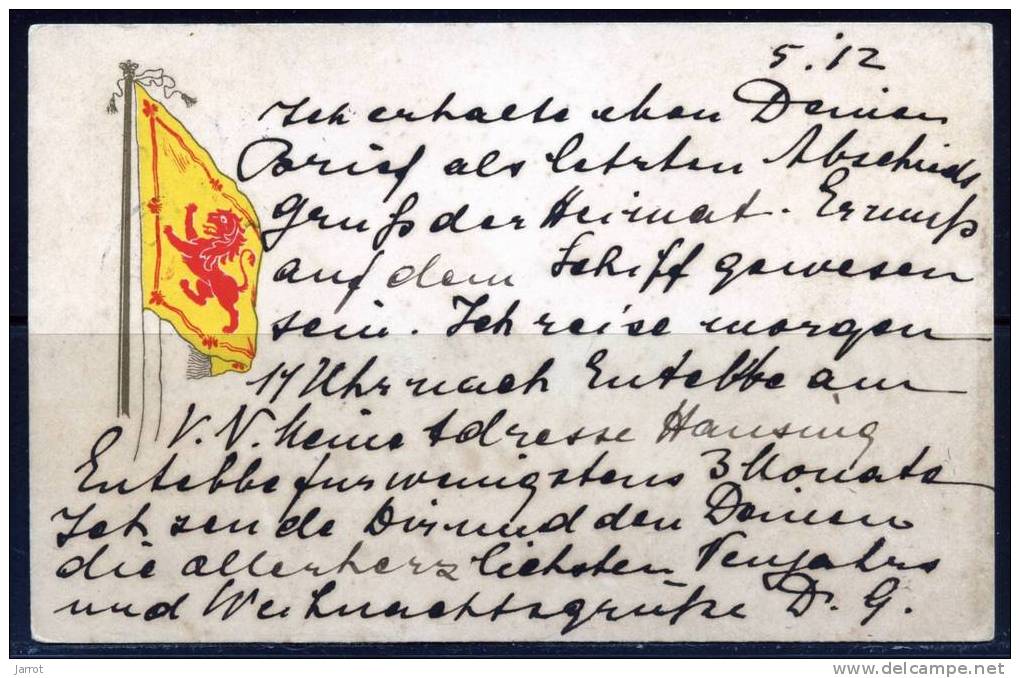 5.12
Ich erhalte eben Deinen
Brief als letzten Abschieds
gruß der Heimat. Er muß
auf dem Schiff gewesen
sein. Ich reise morgen
Uhr nach Entebbe am
V. N. Meine Adresse Hansing
Entebbe fur wenigstens 3 Monate
Ich sende Dir und den Deinen
die allerherzlichsten Neujahrs
und Weihnachtsgrüße D. G.
Jarrot
delcampe.net